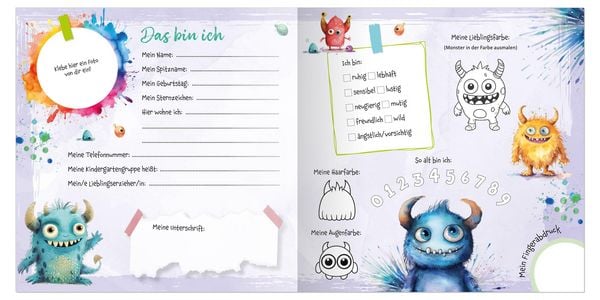 Das bin ich
Klebe hier ein Foto
von dir ein!
Mein Name:
Mein Spitzname:
Mein Geburtstag:
Mein Sternzeichen:
Hier wohne ich:
Meine Telefonnummer:
Meine Kindergartengruppe heißt:
Mein/e Lieblingserzieher/in:
Meine Unterschrift:
Ich bin:
ruhig lebhaft
sensibel lustig
neugierig mutig
freundlich wild
ängstlich/vorsichtig
Meine Lieblingsfarbe:
(Monster in der Farbe ausmalen)
So alt bin ich:
0 1 2 3 4 5 6 7 8 9
Meine Haarfarbe:
Meine Augenfarbe:
Mein Fingerabdruck